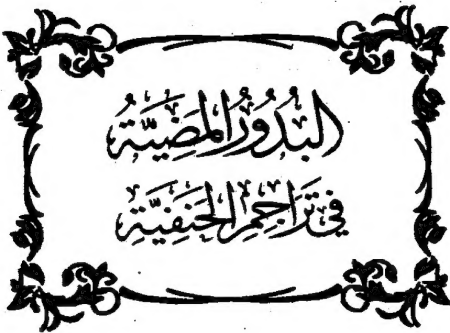 البُدُورُ المَضِيَّةُ
فِي تَرَاجِمِ الحَنَفِيَّةِ